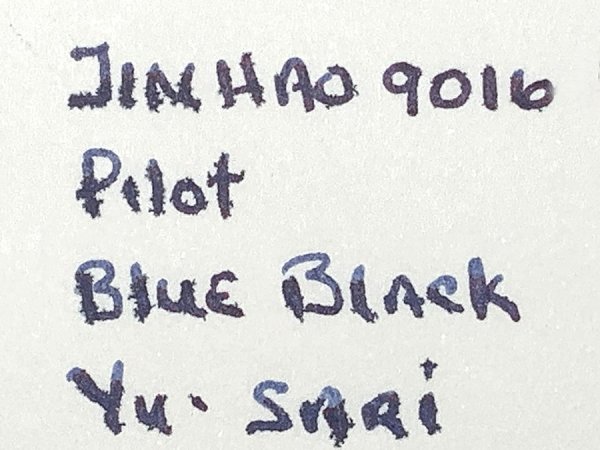 JINHAO 9016
Pilot
BLUE BLACK
Yu-SARi